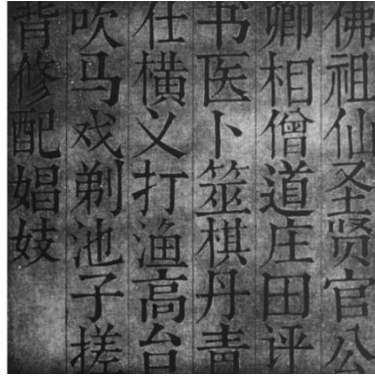 佛祖仙圣贤官公
卿相僧道庄田评
书医卜筮棋丹青
仕横义打渔高台
吹马戏剃池子搓
背修配娼妓